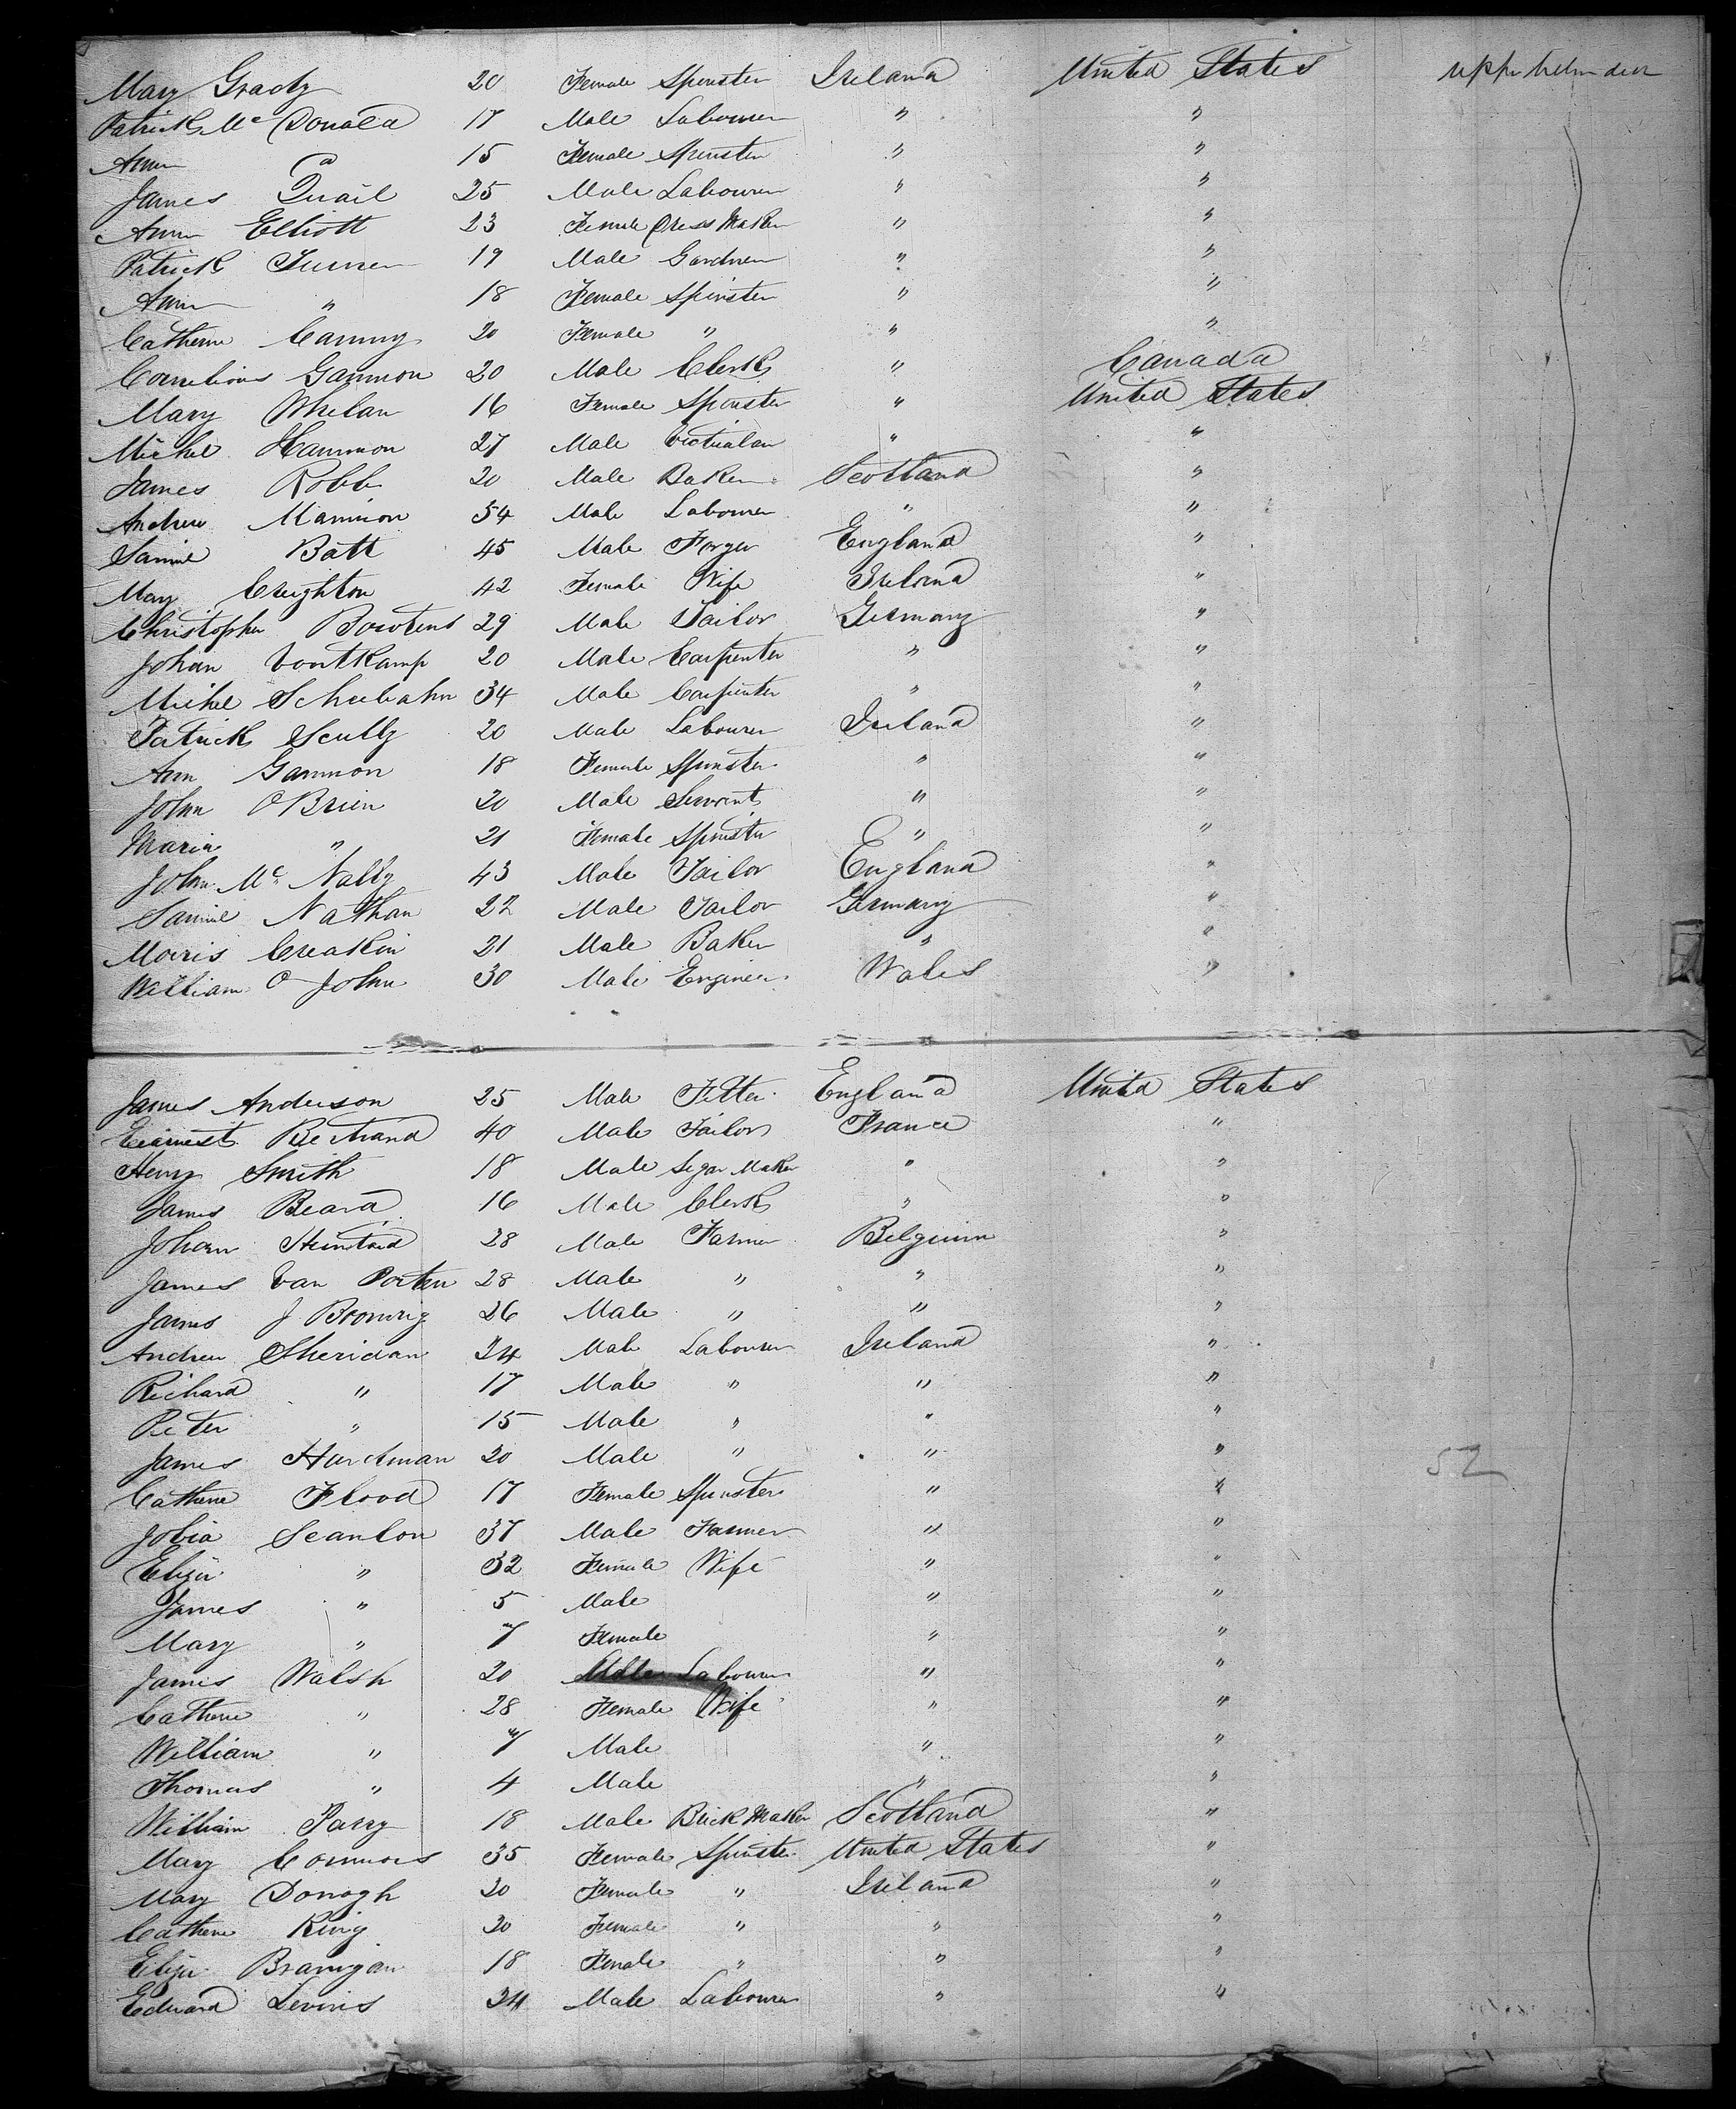 Mary Grady 20 Female Spinster Ireland United States upper between deck
Patrick Mc Donald 17 Male Labourer " "
Ann Do 15 Female Spinster " "
James Quail 25 Male Labourer " "
Ann Elliott 23 Female Dress Maker " "
Patrick Turner 19 Male Gardner " "
Ann " 18 Female Spinster " "
Catherine Canning 20 Female " " "
Cornelious Gammon 20 Male Clerk " Canada
Mary Whelan 16 Female Spinster " United States
Michel Hammon 27 Male Victualar " "
James Robb 20 Male Baker Scotland "
Andrew Mannion 54 Male Labourer " "
Samuel Batt 45 Male Forger England "
Mary Creighton 42 Female Wife Ireland "
Christopher Bowtens 29 Male Tailor Germany "
Johan Vontkamp 20 Male Carpenter " "
Michel Scheebahn 34 Male Carpenter " "
Patrick Scully 20 Male Labourer Ireland "
Ann Gammon 18 Female Spinster " "
John O Brien 20 Male Servant " "
Maria " 21 Female Spinster " "
John Mc Nally 43 Male Tailor England "
Samuel Nathan 22 Male Tailor Germany "
Morris Creakin 21 Male Baker " "
William O John 30 Male Engineer Wales "
James Anderson 25 Male Fitter England United States
Earnest Bertrand 40 Male Tailor France "
Henry Smith 18 Male Segar Maker " "
James Beard 16 Male Clerk " "
Johan 28 Male Farmer Belgium "
James Van Porten 28 Male " " "
James J 26 Male " " "
Andrew Sheridan 24 Male Labourer Ireland "
Richard " 17 Male " " "
Peter " 15 Male " " "
James Hardman 20 Male " " "
52
Catherine Flood 17 Female Spinster " "
Jobia Scanlon 37 Male Farmer " "
Eliza " 32 Female Wife " "
James " 5 Male " "
Mary " 7 Female " "
James Walsh 20 Male Labourer " "
Catherine " 28 Female Wife " "
William " 7 Male " "
Thomas " 4 Male " "
William Parry 18 Male Brick Maker Scotland "
Mary Connors 35 Female Spinster United States "
Mary Donogh 20 Female " Ireland "
Catherine King 20 Female " " "
Eliza Branigan 18 Female " " "
Edward Levins 24 Male Labourer " "